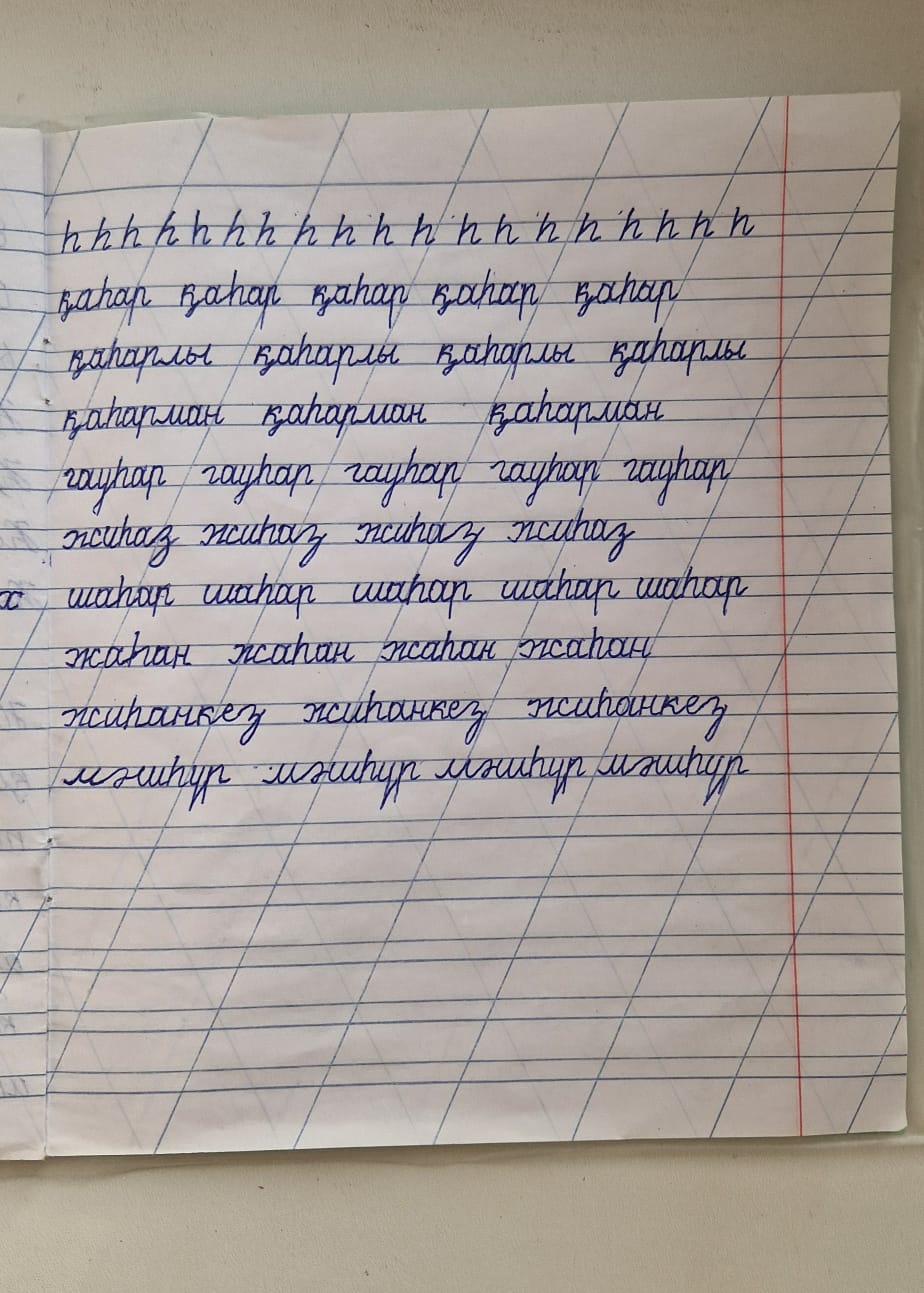 һ һ һ һ һ һ һ һ һ һ һ һ һ һ һ һ һ һ һ
қаһар қаһар қаһар қаһар қаһар
қаһарлы қаһарлы қаһарлы қаһарлы
қаһарман қаһарман қаһарман
гауһар гауһар гауһар гауһар гауһар
жиһаз жиһаз жиһаз жиһаз
шаһар шаһар шаһар шаһар шаһар
жаһан жаһан жаһан жаһан
жиһанкез жиһанкез жиһанкез
мәшһүр мәшһүр мәшһүр мәшһүр